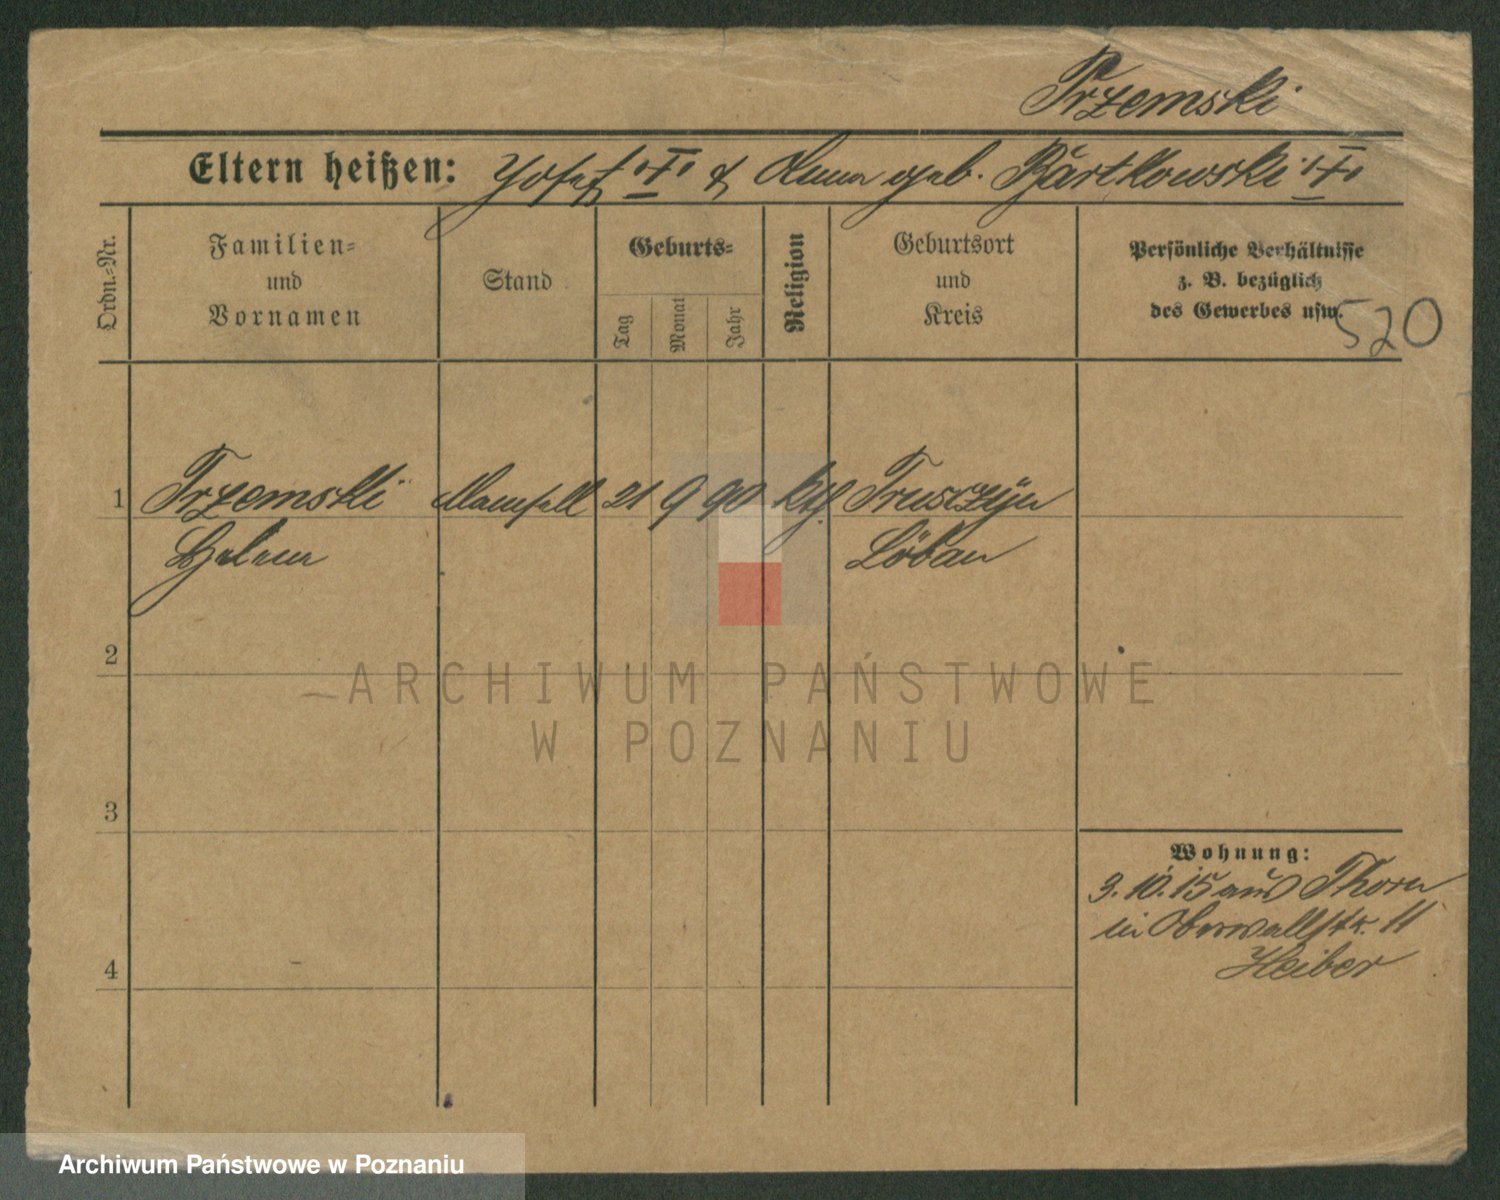 Trzemski
Eltern heißen: Josef † & Anna geb. Bartkowski †
Ordn.-Nr.
Familien-
und
Vornamen
Stand
Geburts-
Tag
Monat
Jahr
Religion
Geburtsort
und
Kreis
Persönliche Verhältnisse
z. B. bezüglich
des Gewerbes usw.
520
1 Trzemski Mamsell 21 9 90 kth. Truszczyn
Helene Löbau
2
3
4
Wohnung:
3.10.15 aus Thorn
in Oberwallstr. 11
Heiber
ARCHIWUM PAŃSTWOWE
W POZNANIU
Archiwum Państwowe w Poznaniu